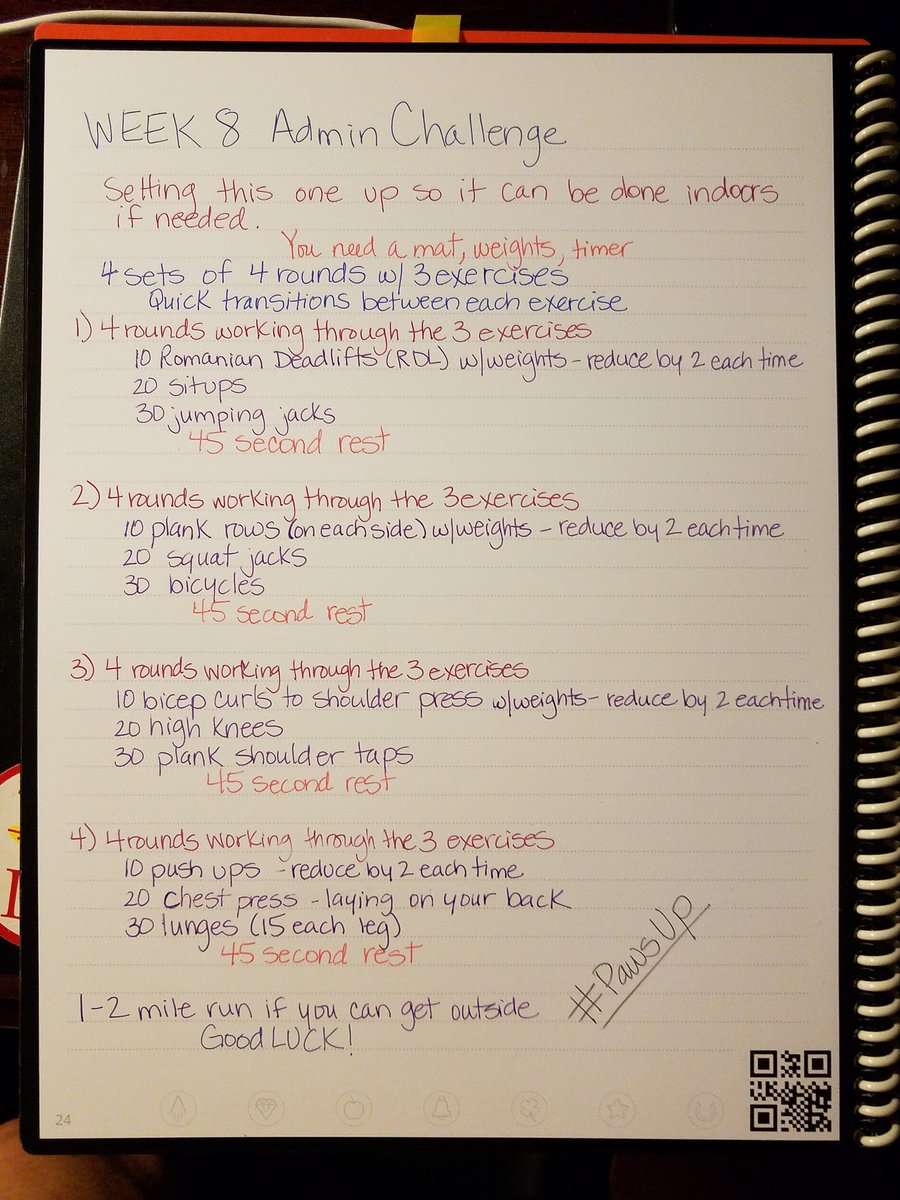 WEEK 8 Admin Challenge
Setting this one up so it can be done indoors
if needed.
You need a mat, weights, timer
4 sets of 4 rounds w/ 3 exercises
Quick transitions between each exercise
1) 4 rounds working through the 3 exercises
10 Romanian Deadlifts (RDL) w/weights - reduce by 2 each time
20 situps
30 jumping jacks
45 second rest
2) 4 rounds working through the 3 exercises
10 plank rows (on each side) w/weights - reduce by 2 each time
20 squat jacks
30 bicycles
45 second rest
3) 4 rounds working through the 3 exercises
10 bicep curls to shoulder press w/weights - reduce by 2 each time
20 high knees
30 plank shoulder taps
45 second rest
4) 4 rounds working through the 3 exercises
10 push ups - reduce by 2 each time
20 chest press - laying on your back
30 lunges (15 each leg)
45 second rest
#PawsUp
1-2 mile run if you can get outside
Good LUCK!
24